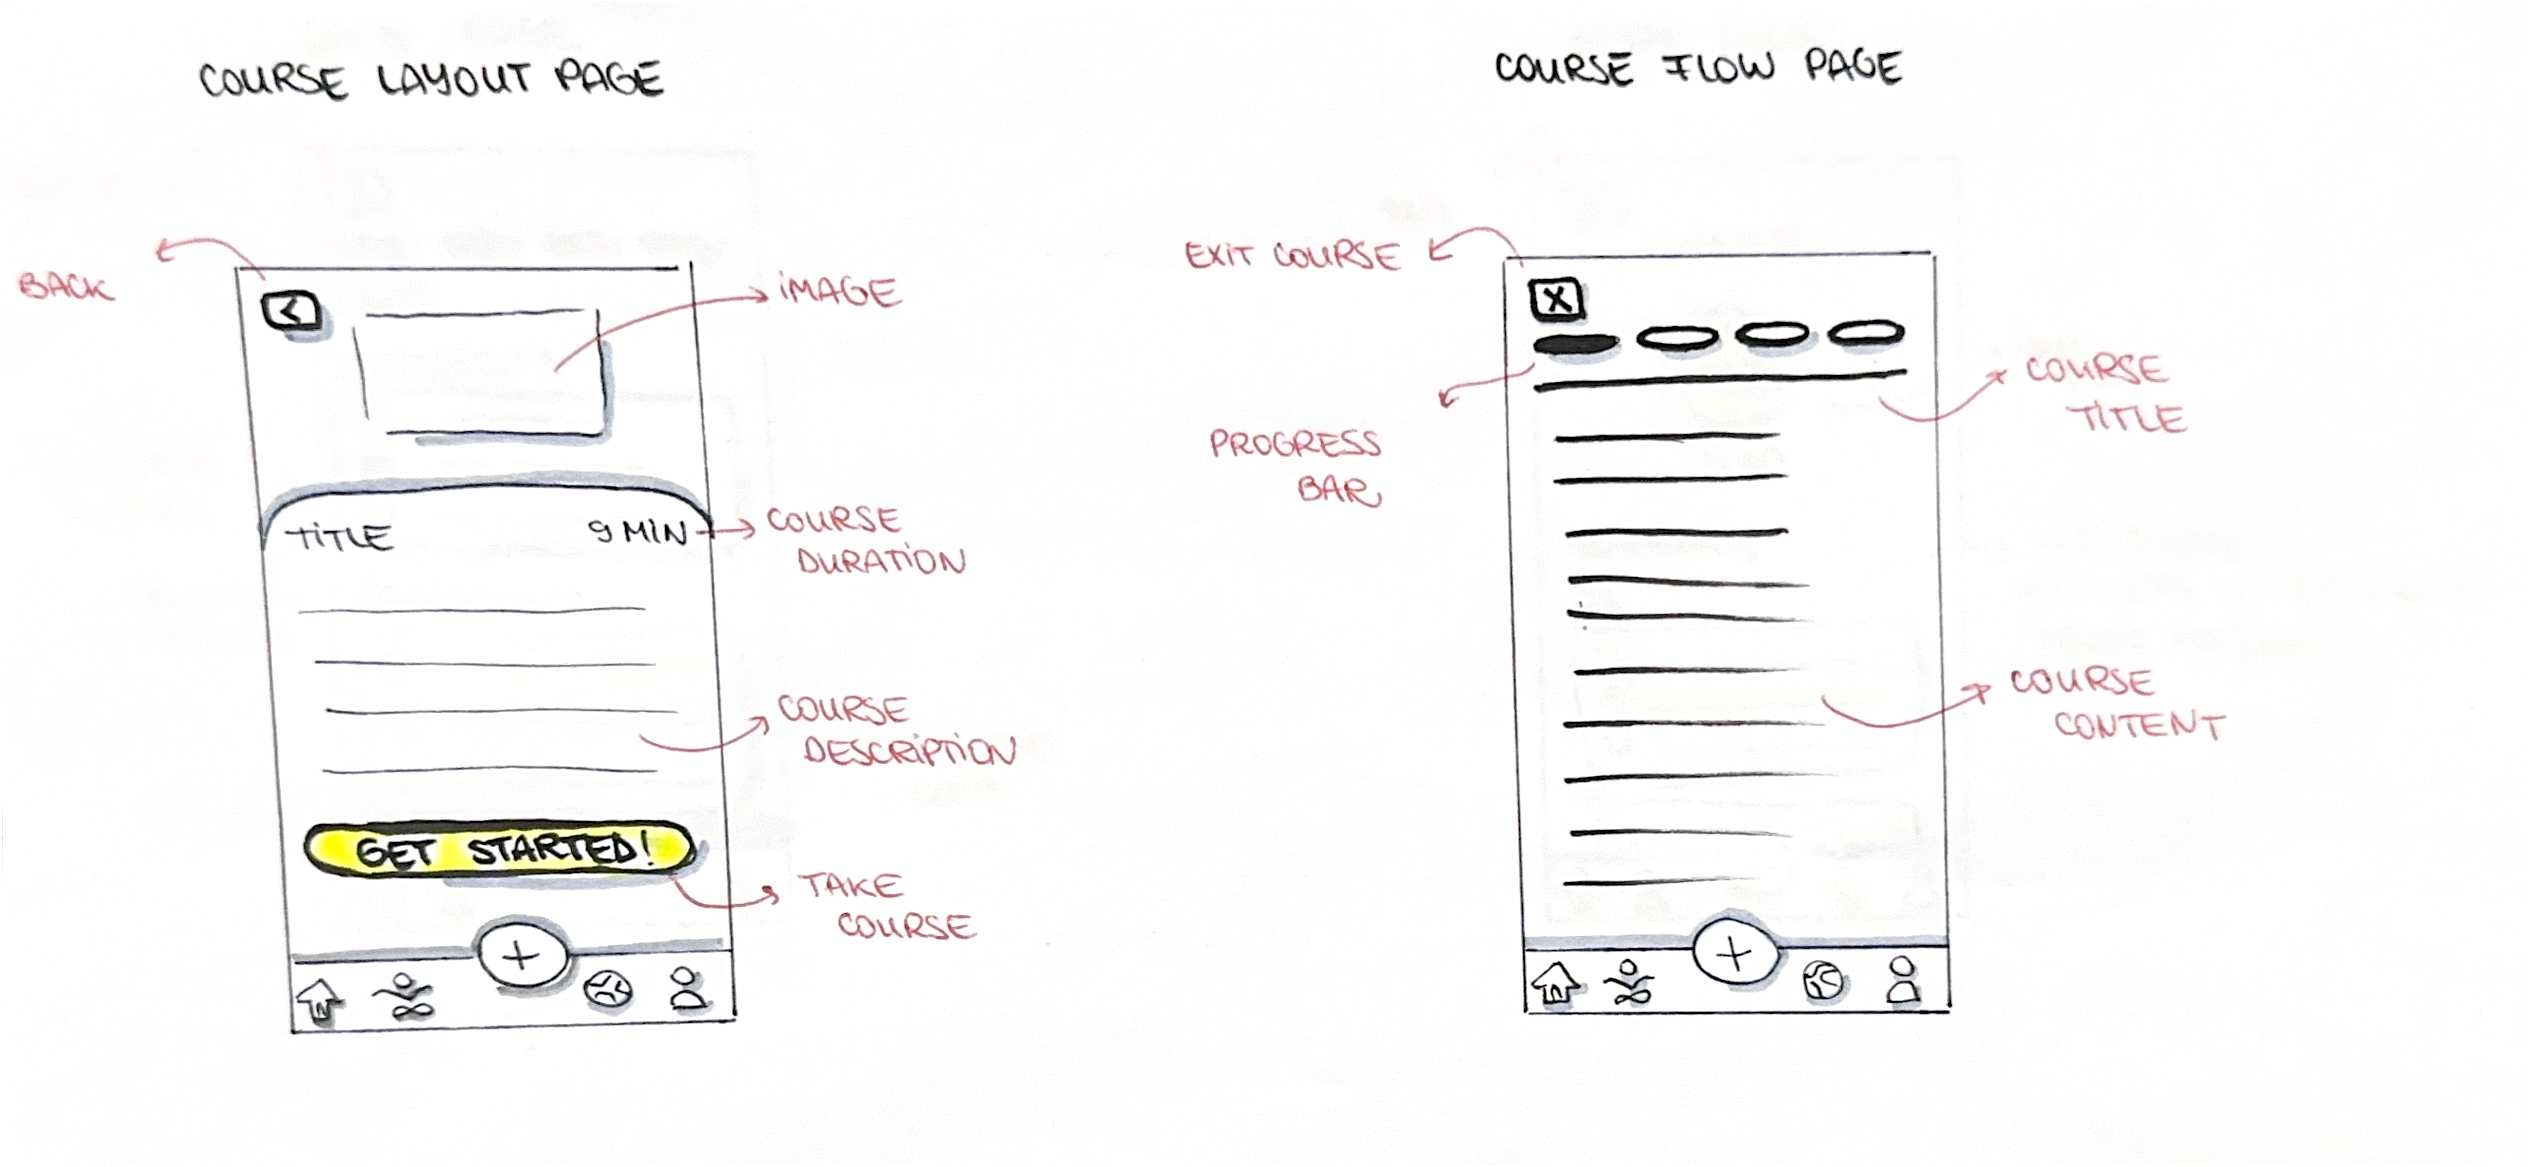 COURSE LAYOUT PAGE
BACK
IMAGE
TITLE
9 MIN
COURSE
DURATION
COURSE
DESCRIPTION
GET STARTED!
TAKE
COURSE
COURSE FLOW PAGE
EXIT COURSE
X
PROGRESS
BAR
COURSE
TITLE
COURSE
CONTENT